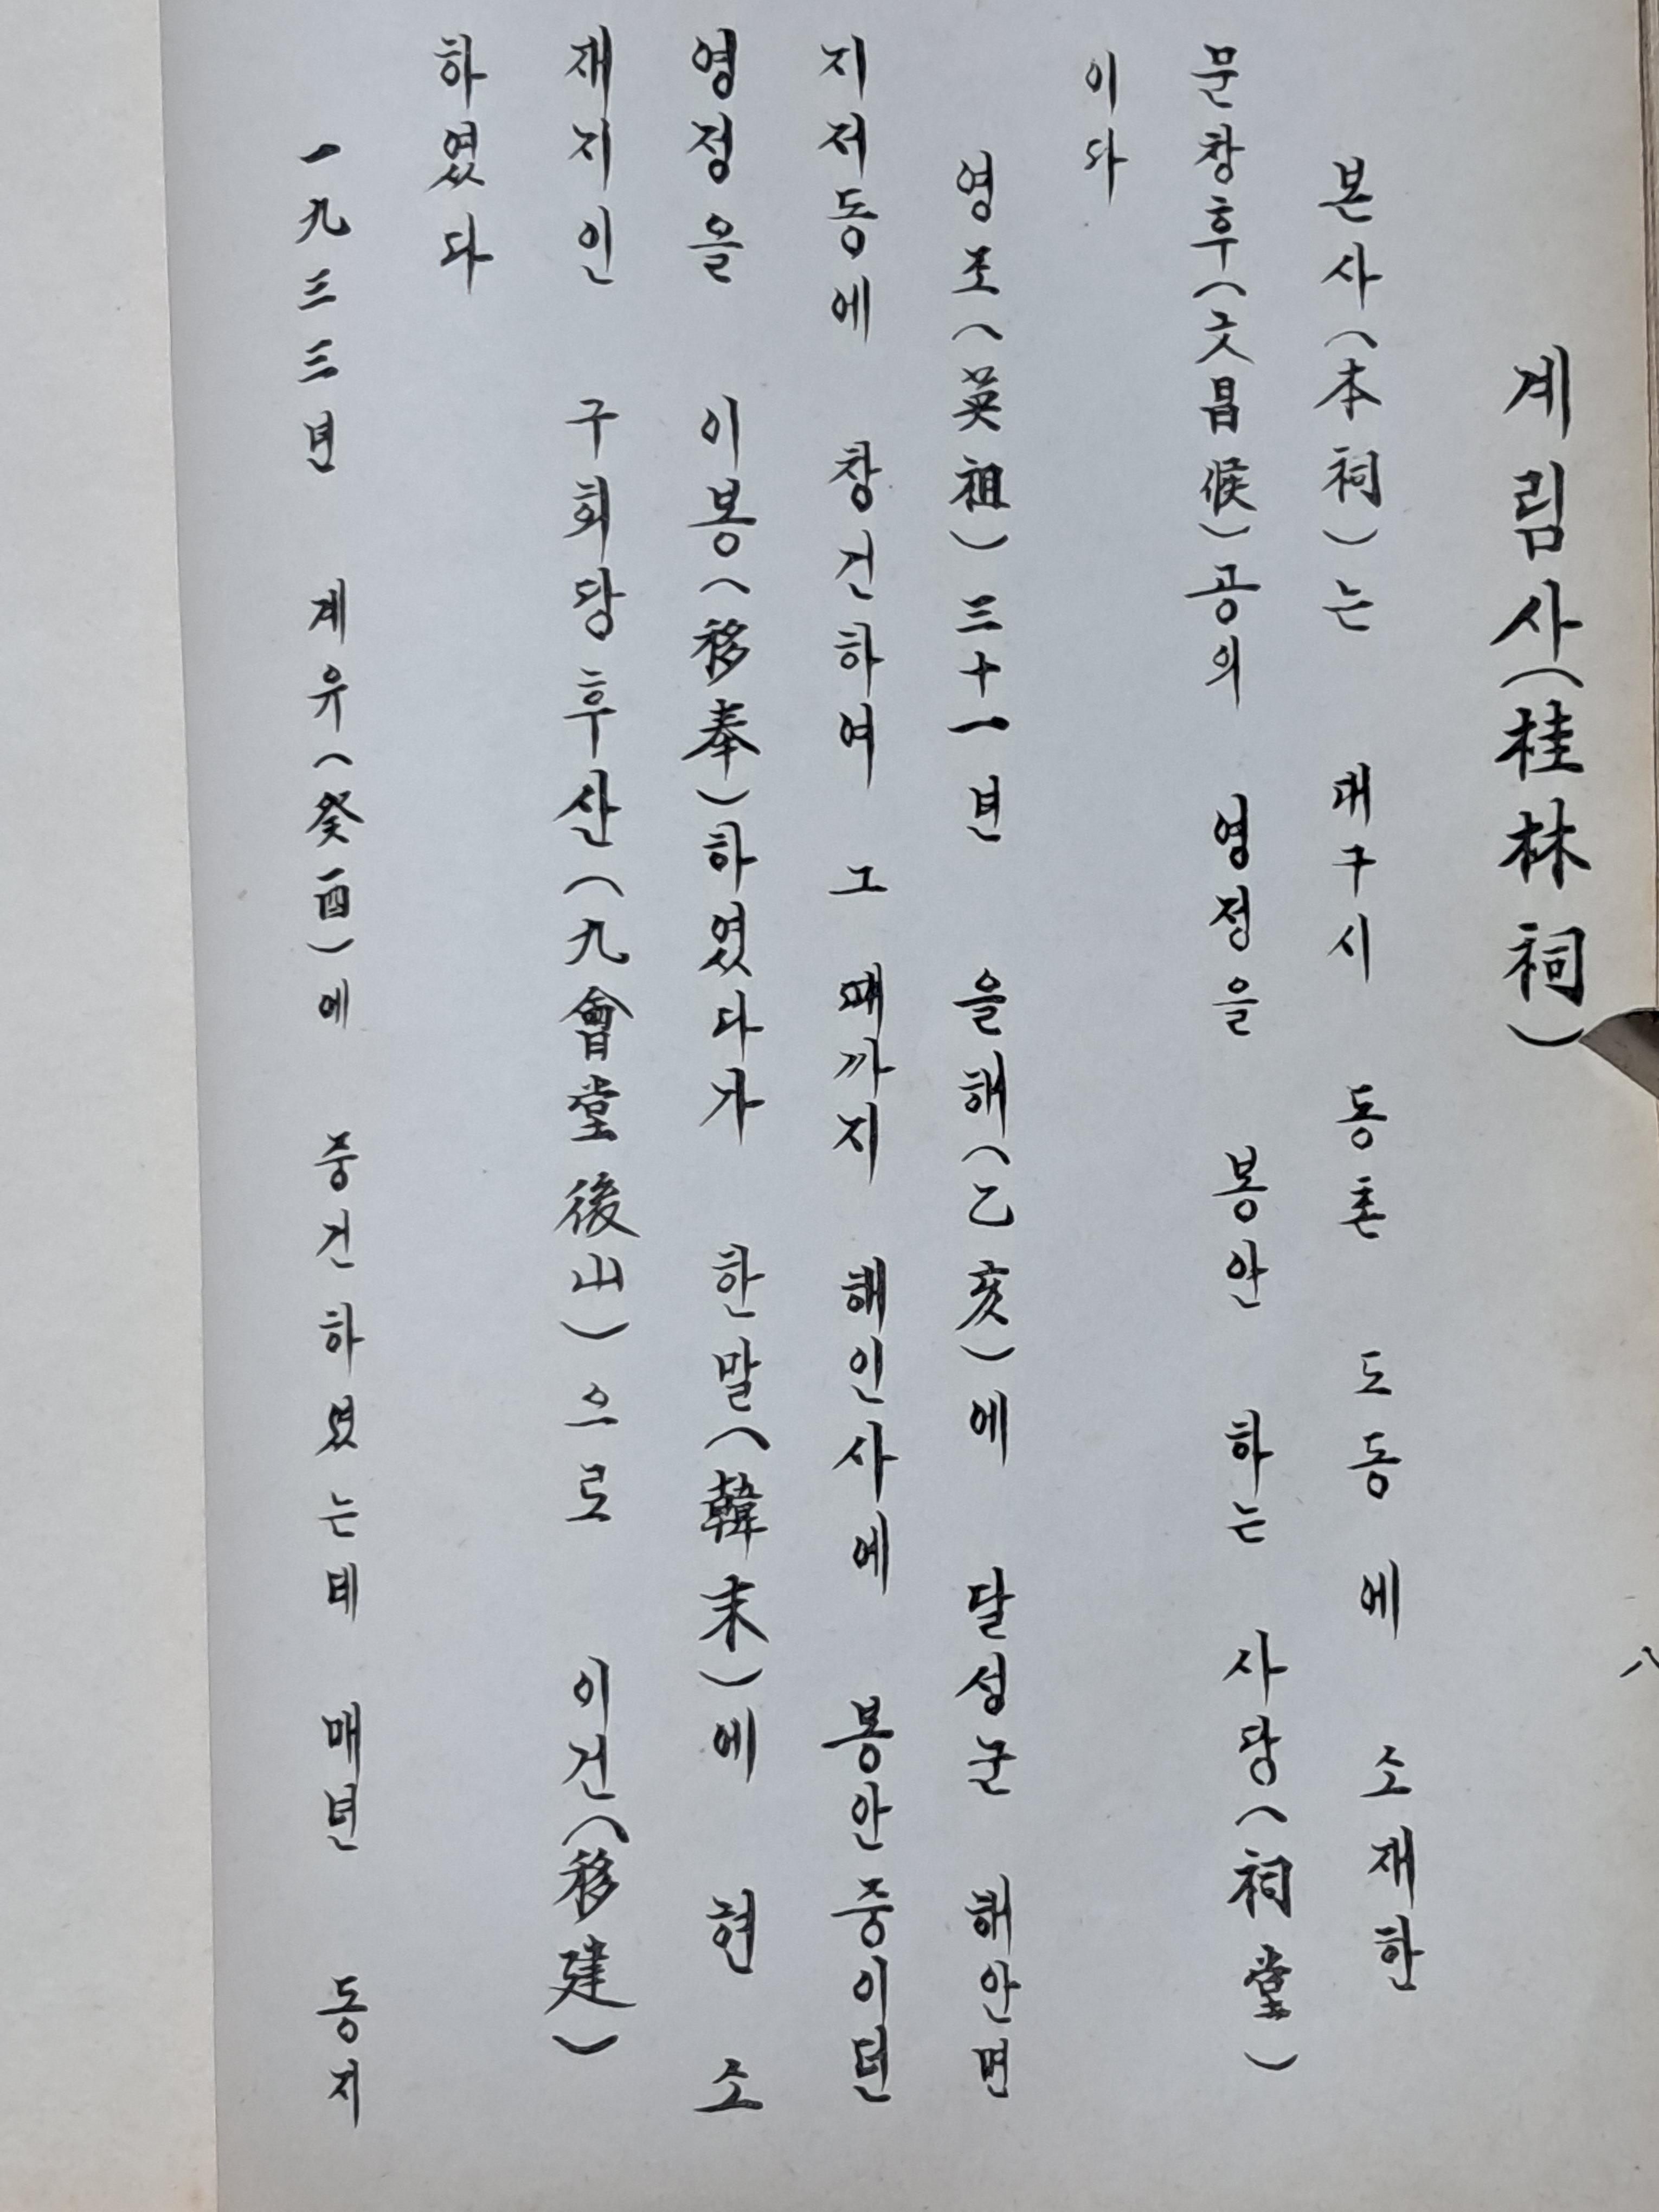 계림사(桂林祠)
본사(本祠)는 대구시 동촌 도동에 소재한
문창후(文昌候)공의 영정을 봉안 하는 사당(祠堂)
이다
영조(英祖)三十一년 을해(乙亥)에 달성군 해안면
지저동에 창건하여 그 때까지 해인사에 봉안중이던
영정을 이봉(移奉)하였다가 한말(韓末)에 현 소
재지인 구회당후산(九會堂後山)으로 이건(移建)
하였다
一九三三년 계유(癸酉)에 중건하였는데 매년 동지
八